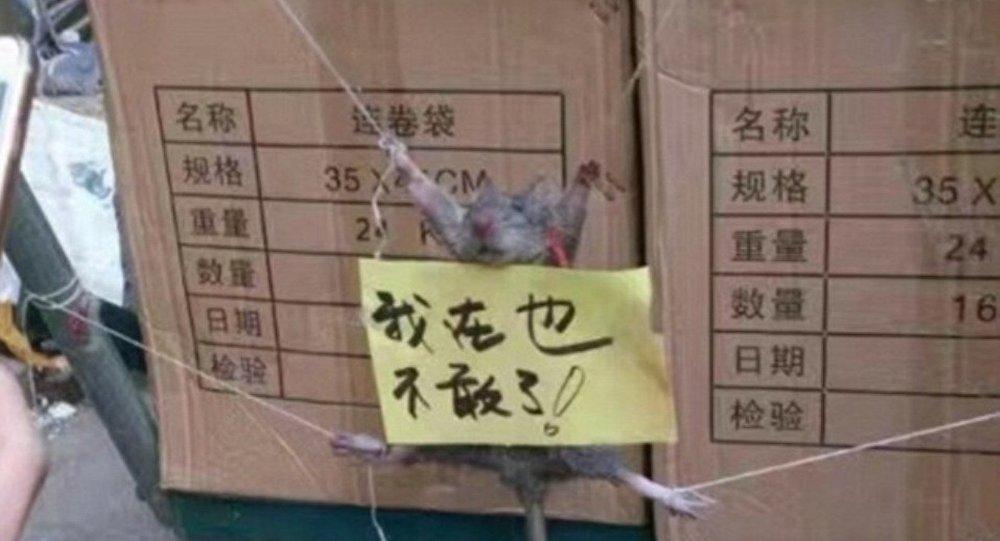 名称 连卷袋
规格 35 X 45CM
重量 24 K
数量
日期
检验
我在也
不敢了!
名称 连
规格 35 X
重量 24
数量 16
日期
检验